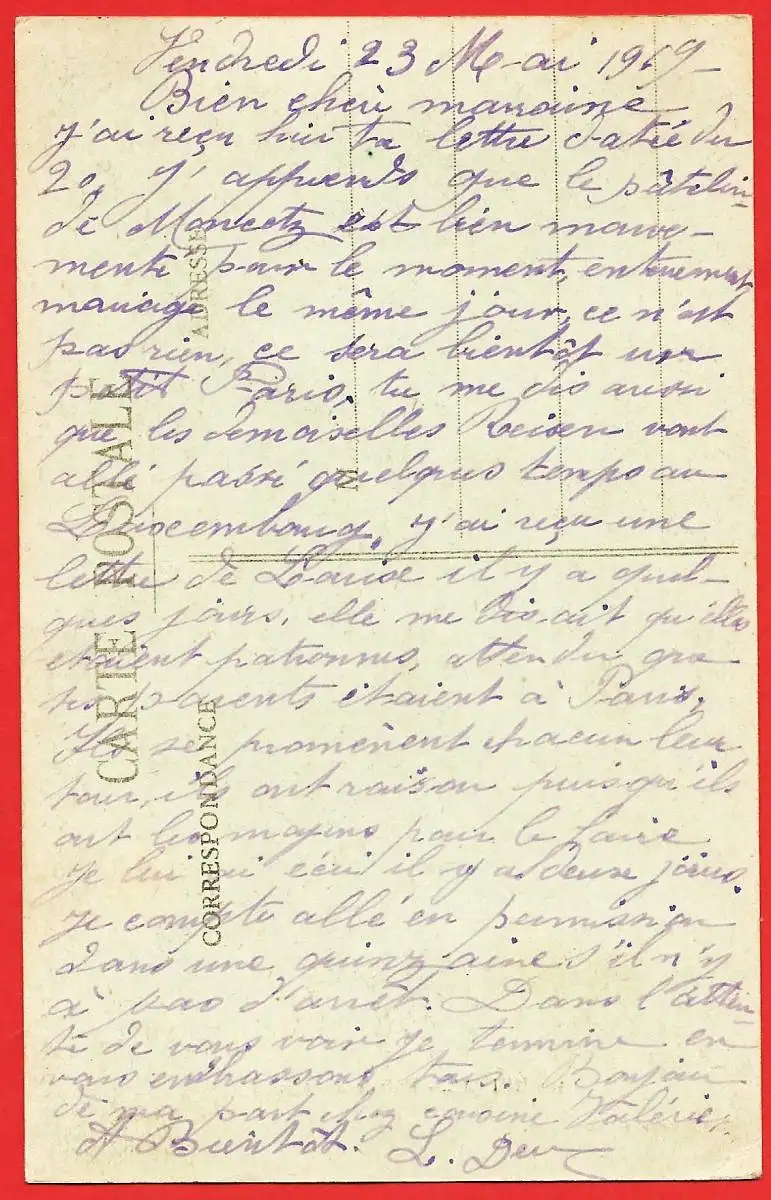 Vendredi 23 Mai 1919
Bien cheri marraine
J'ai reçu hier ta lettre datée du
20, J'apprends que le patelin
de Moncetz est bien mouve-
menté pour le moment, enterrement,
mariage le même jour, ce n'est
pas rien, ce sera bientôt un
petit Paris. tu me dis aussi
que les demoiselles Reisen vont
allé passé quelques temps au
Luxembourg, J'ai reçu une
lettre de Louise il y a quel-
ques jours, elle me disait qu'elles
étaient patronnes, attendu que
ses parents étaient à Paris.
Ils se promènent chacun leur
tour, ils ont raison puisqu'ils
ont les moyens pour le faire
Je lui ai écri il y a deux jours.
Je compte allé en permission
dans une quinzaine s'il n'y
à pas d'arrêt. Dans l'atten-
te de vous voir je termine en
vous embrassons tous. Bonjour
de ma part chez cousine Valérie,
A Bientôt. L.
CARTE POSTALE
CORRESPONDANCE
ADRESSE
M